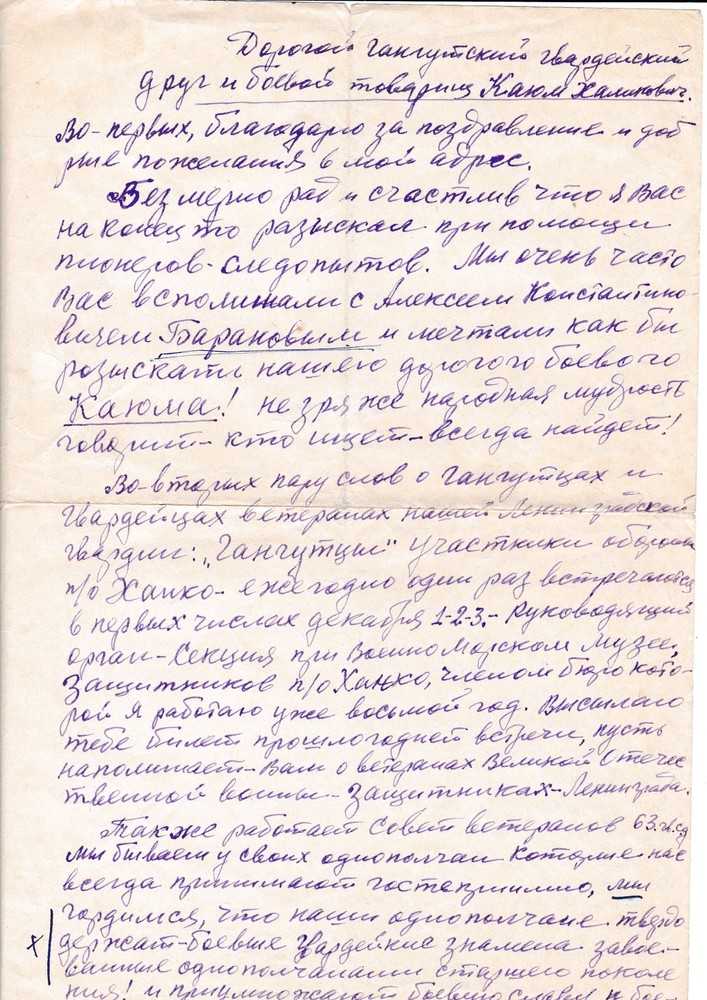 Дорогой гангутский гвардейский
друг и боевой товарищ Каюм Халикович.
Во-первых, благодарю за поздравление и доб
рые пожелания в мой адрес.
Безмерно рад и счастлив что я Вас
на конец то разыскал при помощи
пионеров-следопытов. Мы очень часто
Вас вспоминали с Алексеем Константино-
вичем Барановым и мечтали как бы
розыскать нашего дорогого боевого
Каюма! не зря же народная мудрость
говорит - кто ищет - всегда найдет!
Во-вторых пару слов о гангутцах и
гвардейцах ветеранах нашей Ленинградской
гвардии: „Гангутцы" участники обороны
п/о Ханко - ежегодно один раз встречаются
в первых числах декабря 1-2-3.- Руководящий
орган - Секция при Военно Морском музее,
Защитников п/о Ханко, членом бюро кото-
рой я работаю уже восьмой год. Высылаю
тебе билет прошлогодней встречи, пусть
напоминает - Вам о ветеранах Великой Отечес
твенной войны - Защитниках - Ленинграда.
Также работает Совет ветеранов 63.гв.сд
мы бываем у своих однополчан которые нас
всегда принимают гостеприимно, мы
гордимся, что наши однополчане твердо
держат - боевые гвардейские знамена завое-
ванные однополчанами старшего поколе
ния! и приумножают боевую славу